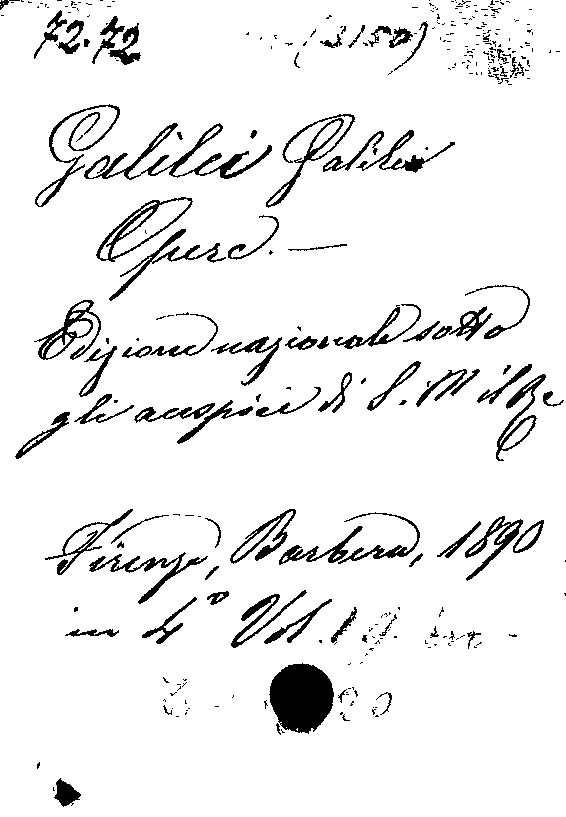 72.72 (3150)
Galilei Galileo
Opere. —
Edizione nazionale sotto
gli auspici di S. M il Re
Firenze, Barbera, 1890
in 4° Vol. 1 9
20